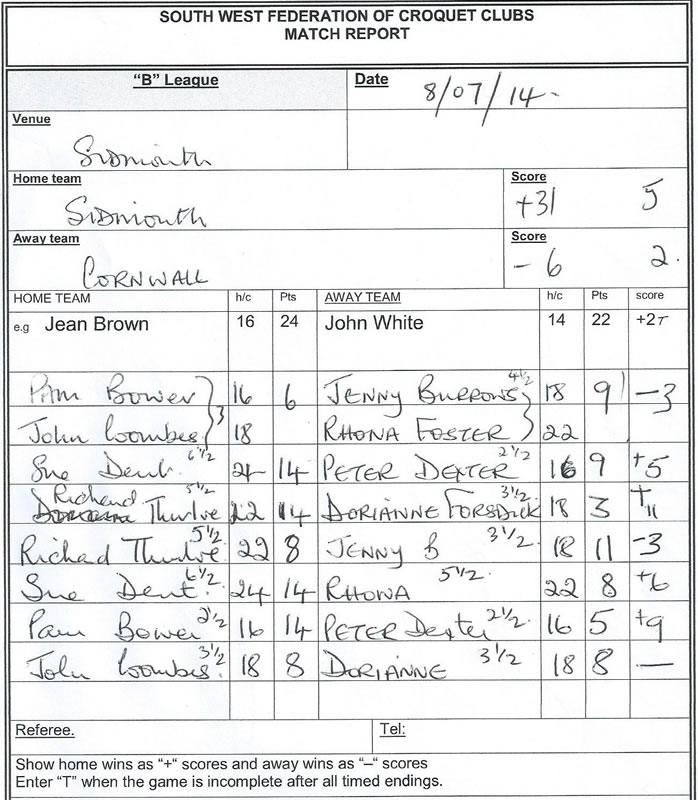 SOUTH WEST FEDERATION OF CROQUET CLUBS
MATCH REPORT
"B" League Date 8/07/14.
Venue
Sidmouth
Home team Score
Sidmouth +31 5
Away team Score
CORNWALL - 6 2.
HOME TEAM h/c Pts AWAY TEAM h/c Pts score
e.g Jean Brown 16 24 John White 14 22 +2T
Pam Bower 16 6 JENNY BURROWS 4½ 18 9 -3
John Coombes 3 18 RHONA FOSTER 22
Sue Dent. 6½ 24 14 PETER DEXTER 2½ 16 9 +5
Richard Thurlwe 5½ 22 14 DORIANNE FORSDICK 3½ 18 3 +11
Richard Thurlwe 5½ 22 8 JENNY B 3½. 18 11 -3
Sue Dent. 6½ 24 14 RHONA 5½. 22 8 +6
Pam Bower 2½ 16 14 PETER Dexter 2½. 16 5 +9
John Coombes. 3½ 18 8 DORIANNE 3½ 18 8 —
Referee. Tel:
Show home wins as "+" scores and away wins as "–" scores
Enter "T" when the game is incomplete after all timed endings.